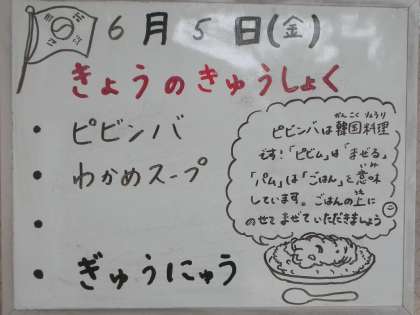 6月5日(金)
きょうのきゅうしょく
・ピビンバ
・わかめスープ
・
・ぎゅうにゅう
かんこくりょうり
ピビンバは韓国料理
です!「ピビム」は「まぜる」
いみ
「パム」は「ごはん」を意味
うえ
しています。ごはんの上に
のせてまぜていただきましょう